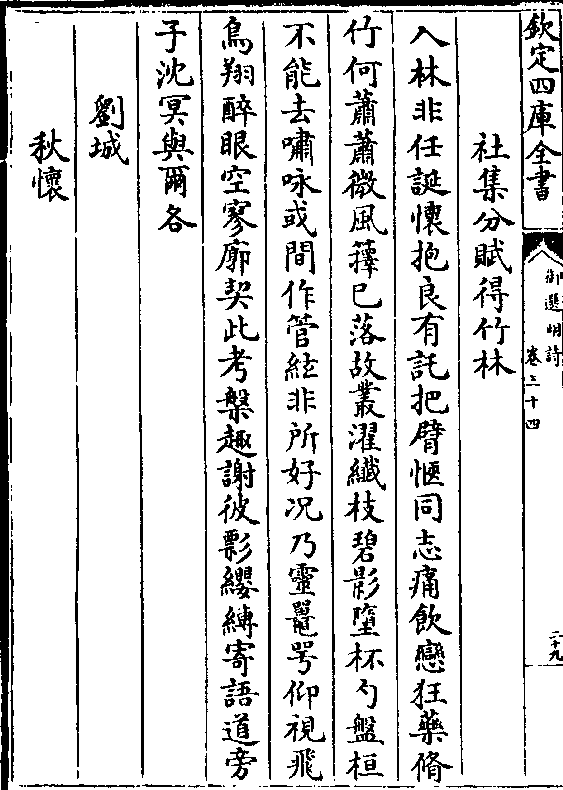 欽定四庫全書
御選明詩
卷三十四
二十九
社集分賦得竹林
入林非任誕懷抱良有託把臂愜同志痛飲戀狂藥脩
竹何蕭蕭微風籜已落故叢濯纖枝碧影墮杯勺盤桓
不能去嘯咏或間作管絃非所好况乃靈鼉咢仰視飛
鳥翔醉眼空寥廓契此考槃趣謝彼影纓縛寄語道旁
子沈冥與爾各
劉城
秋懷